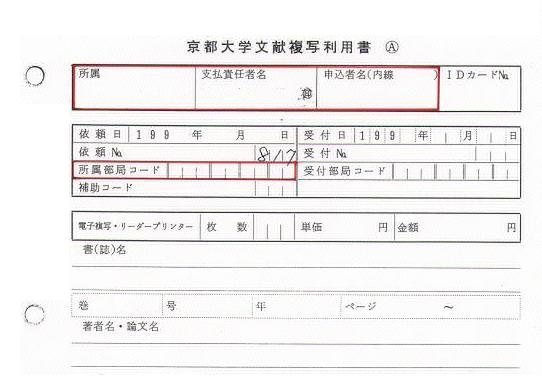 京都大学文献複写利用書 Ⓐ
所属 支払責任者名 ㊞ 申込者名(内線 ) IDカード№
依頼日 199 年 月 日 受付日 199 年 月 日
依頼№ 8/17 受付№
所属部局コード 受付部局コード
補助コード
電子複写・リーダープリンター 枚数 単価 円 金額 円
書(誌)名
巻 号 年 ページ ～
著者名・論文名